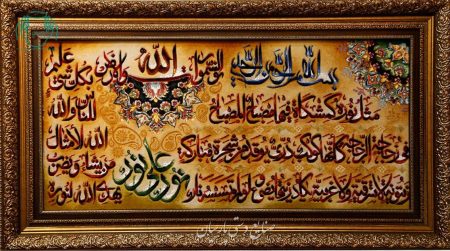 بسم الله الرحمن الرحيم
الله نور السموات والارض
مثل نوره كمشكاة فيها مصباح المصباح
في زجاجة الزجاجة كأنها كوكب دري يوقد من شجرة مباركة
زيتونة لا شرقية ولا غربية يكاد زيتها يضيء ولو لم تمسسه نار
نور على نور
يهدي الله لنوره
من يشاء ويضرب
الله الأمثال
للناس والله
بكل شيء عليم
صنایع دستی پارسیان